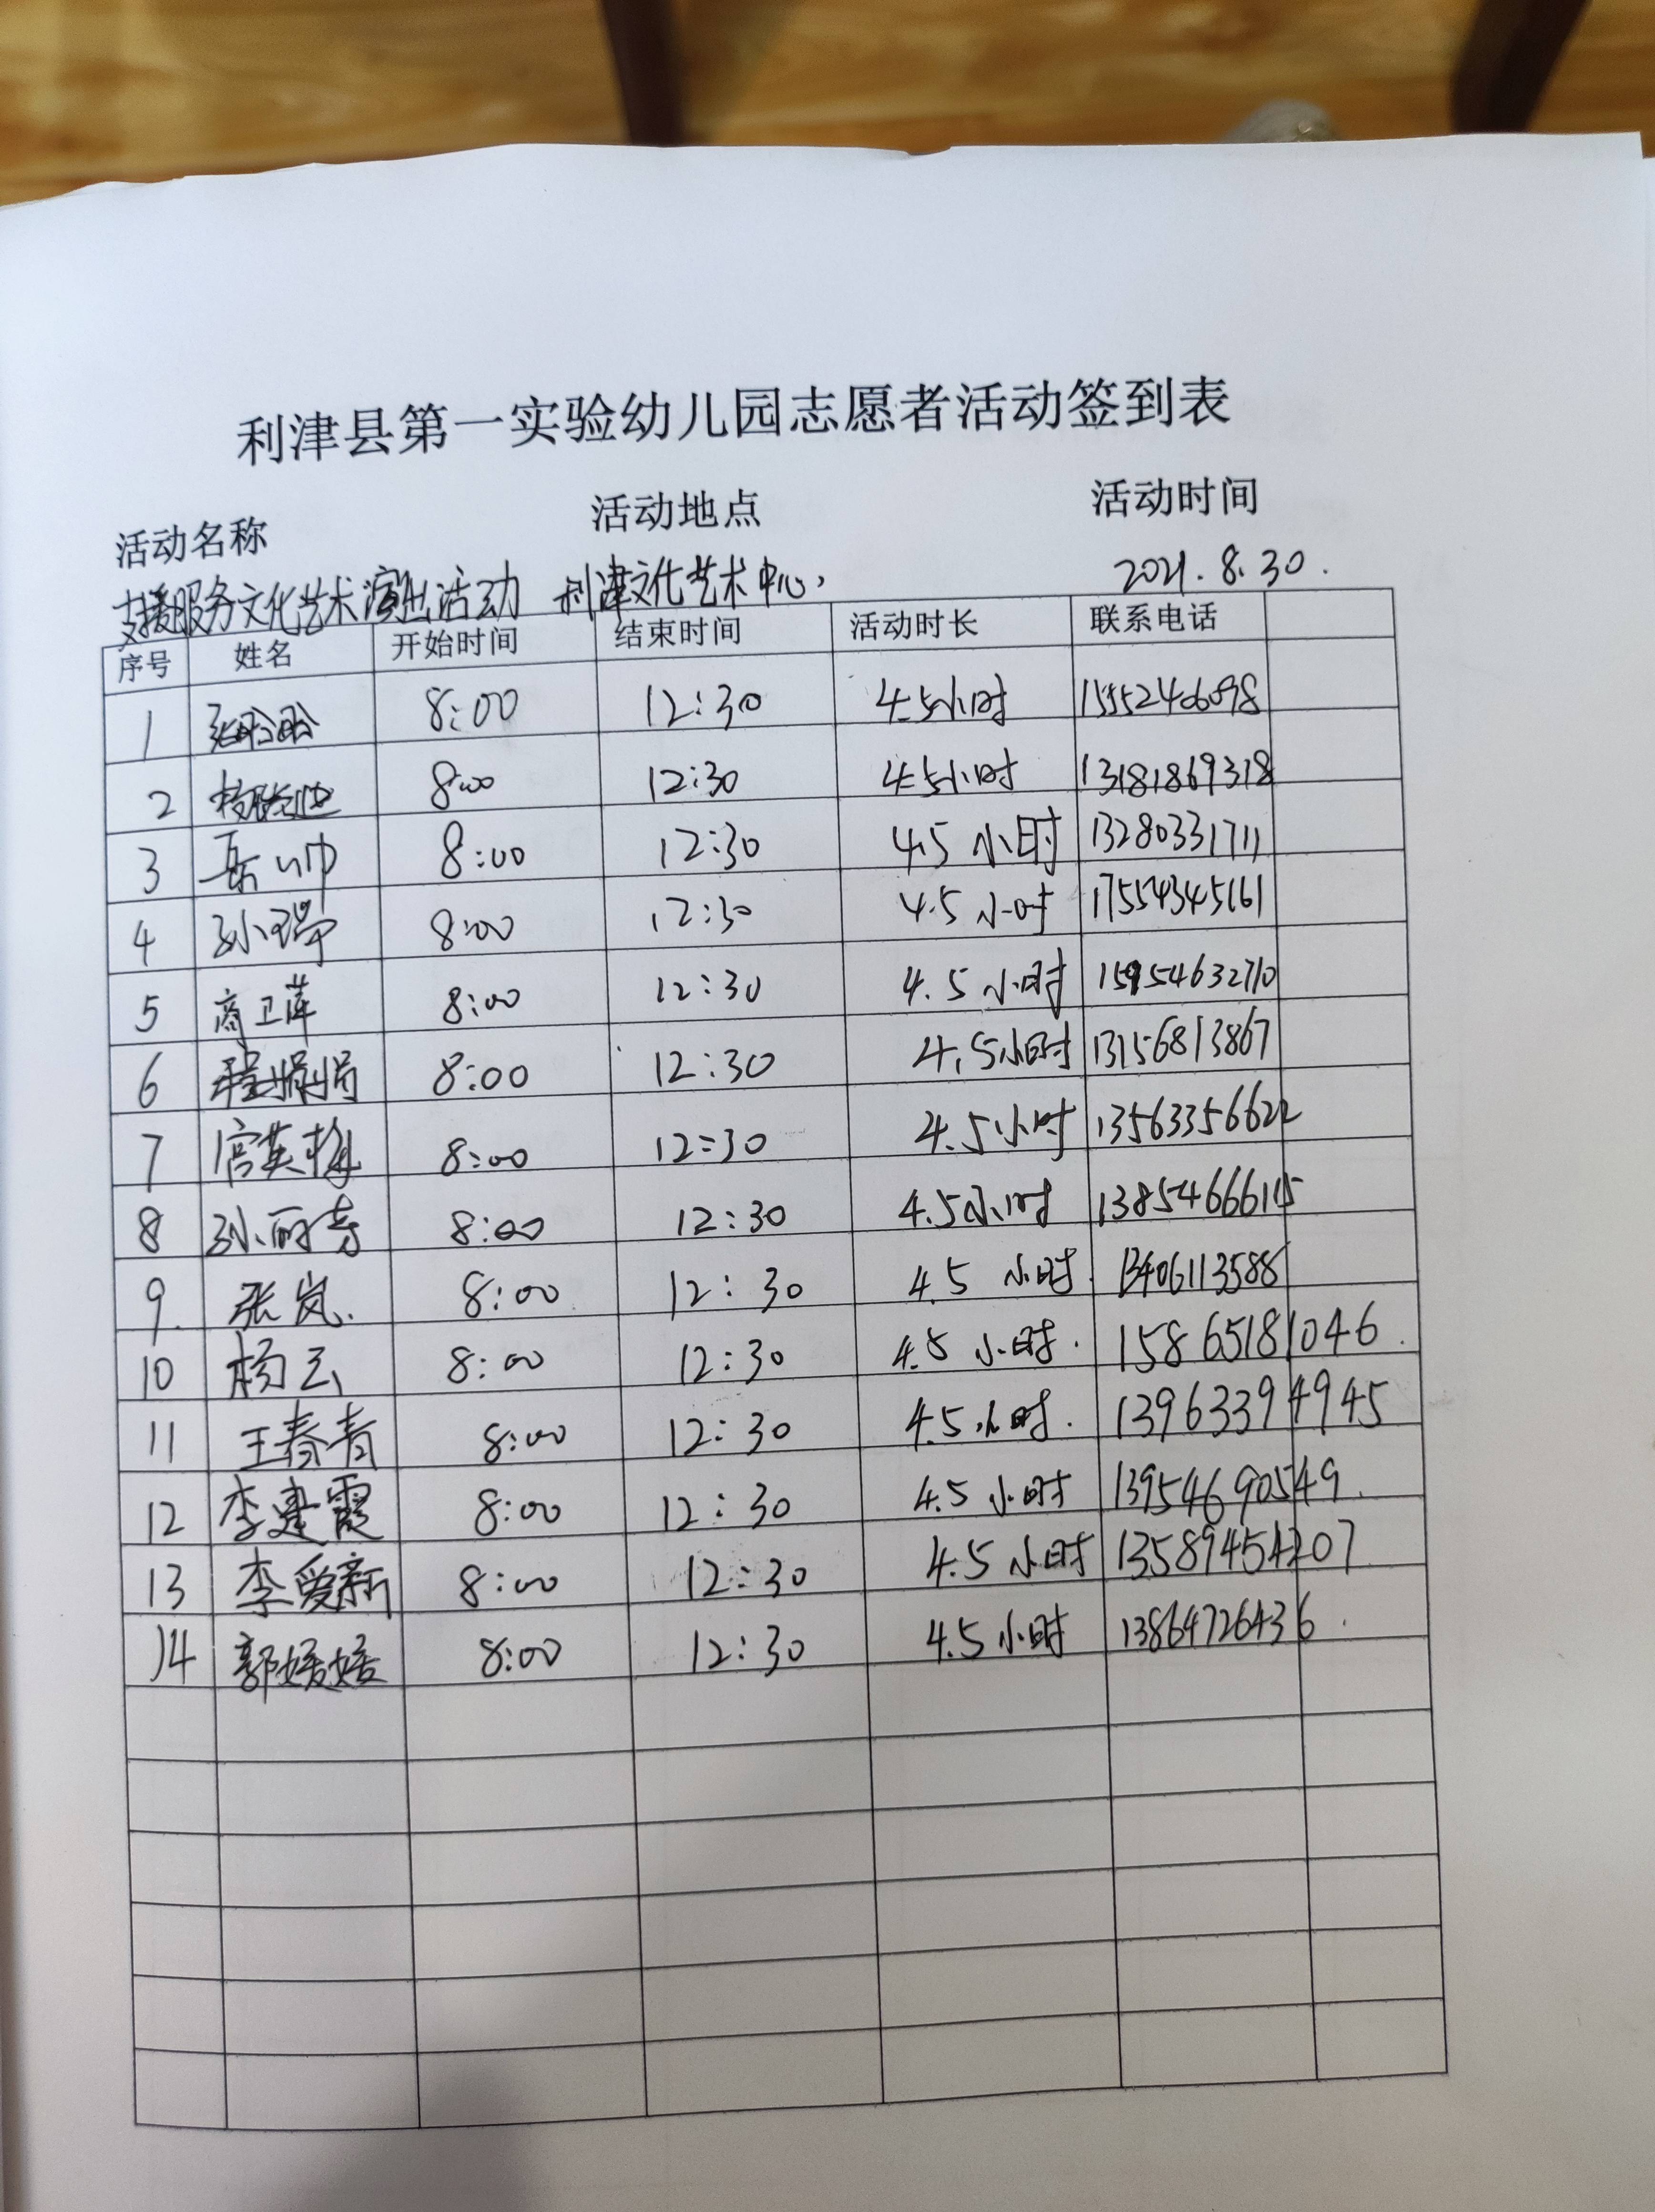 利津县第一实验幼儿园志愿者活动签到表
活动名称 活动地点 活动时间
支援服务文化艺术演出活动 利津文化艺术中心, 2021.8.30.
序号 姓名 开始时间 结束时间 活动时长 联系电话
1 8:00 12:30 4.5小时 15552466098
2 8:00 12:30 4.5小时 13181869318
3 岳帅 8:00 12:30 4.5小时 13280331711
4 孙瑞 8:00 12:30 4.5小时 17554345161
5 商卫萍 8:00 12:30 4.5小时 15954632710
6 程娟娟 8:00 12:30 4.5小时 13156813867
7 宫英梅 8:00 12:30 4.5小时 13563356622
8 孙丽芳 8:00 12:30 4.5小时 13854666115
9. 张岚. 8:00 12:30 4.5小时. 13406113588
10 杨云 8:00 12:30 4.5小时. 15865181046.
11 王春青 8:00 12:30 4.5小时. 13963394945
12 李建霞 8:00 12:30 4.5小时 13954690549.
13 李爱新 8:00 12:30 4.5小时 13589454207
14 郭媛媛 8:00 12:30 4.5小时 13864726436.